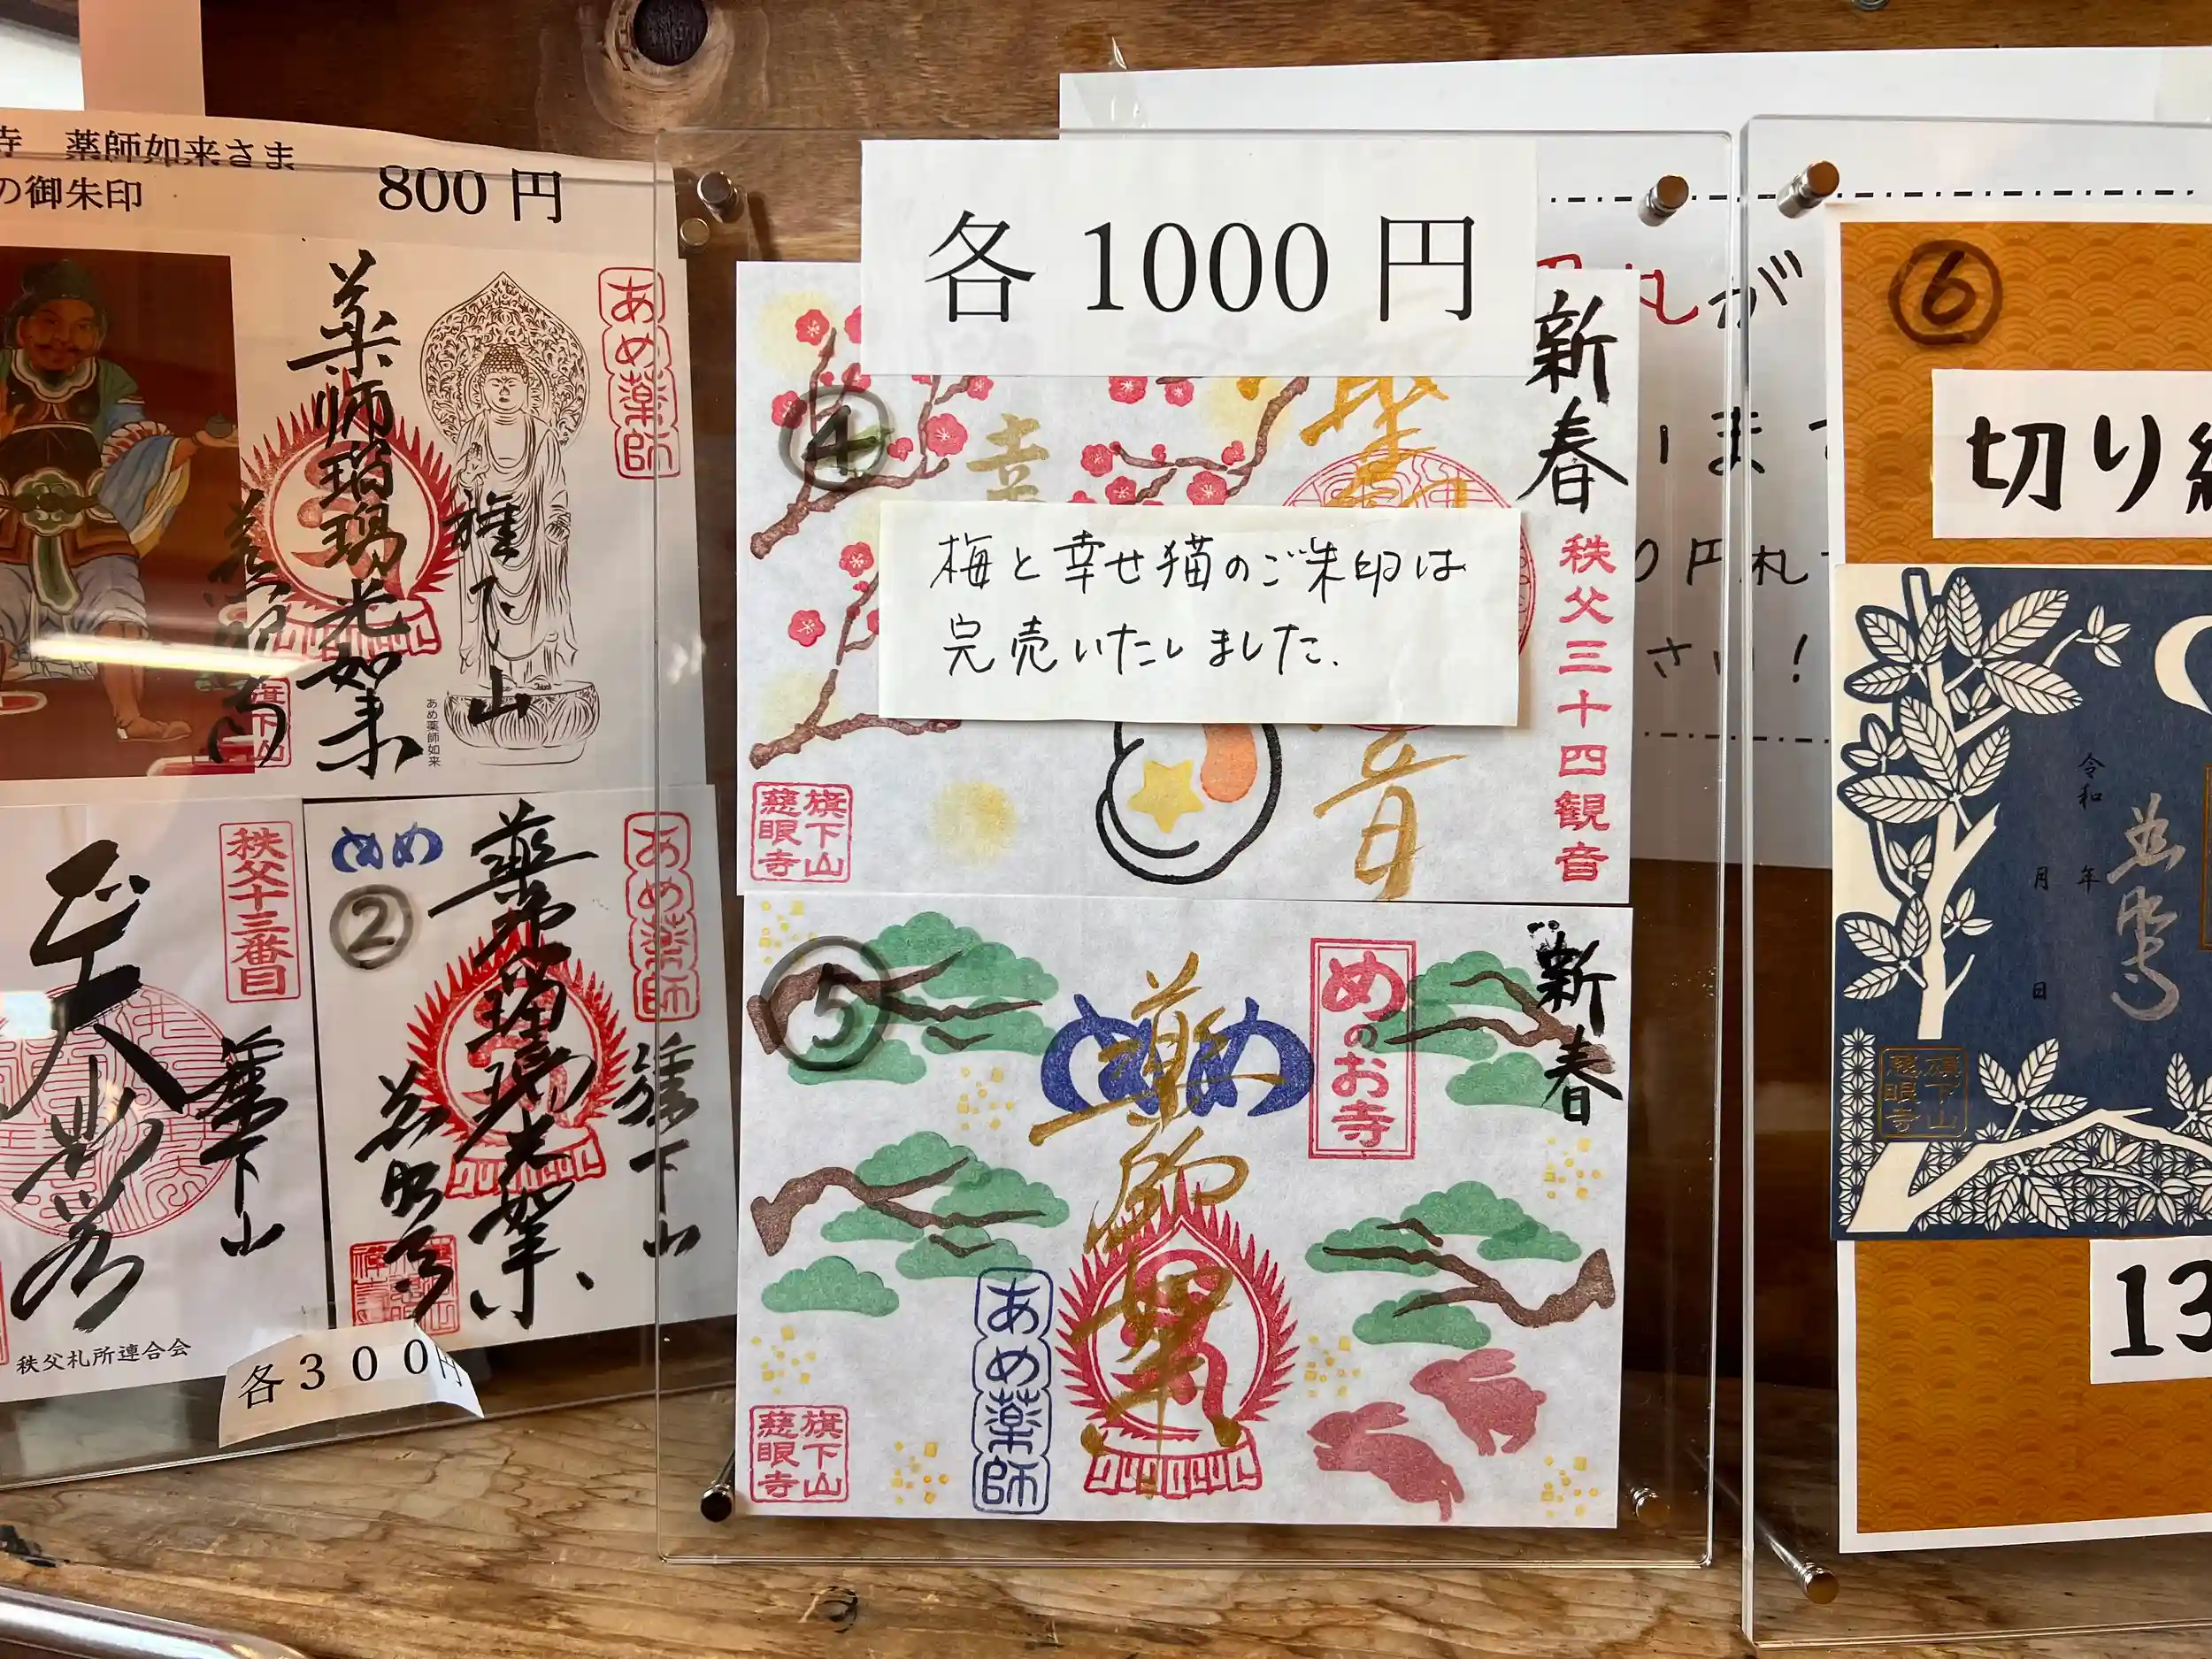 寺 薬師如来さま
の御朱印
800 円
あめ薬師
薬師瑠璃光如来
旗下山
あめ薬師如来
秩父十三番目
旗下山
秩父札所連合会
めめ
②
あめ薬師
旗下山
各300円
各 1000 円
新春
④
幸
梅と幸せ猫のご朱印は
完売いたしました.
秩父三十四観音
音
旗下山
慈眼寺
⑤
新春
めめ
めのお寺
薬師如来
あめ薬師
旗下山
慈眼寺
札が
円札
さい!
⑥
切り
令和
年
月
日
旗下山
慈眼寺
13